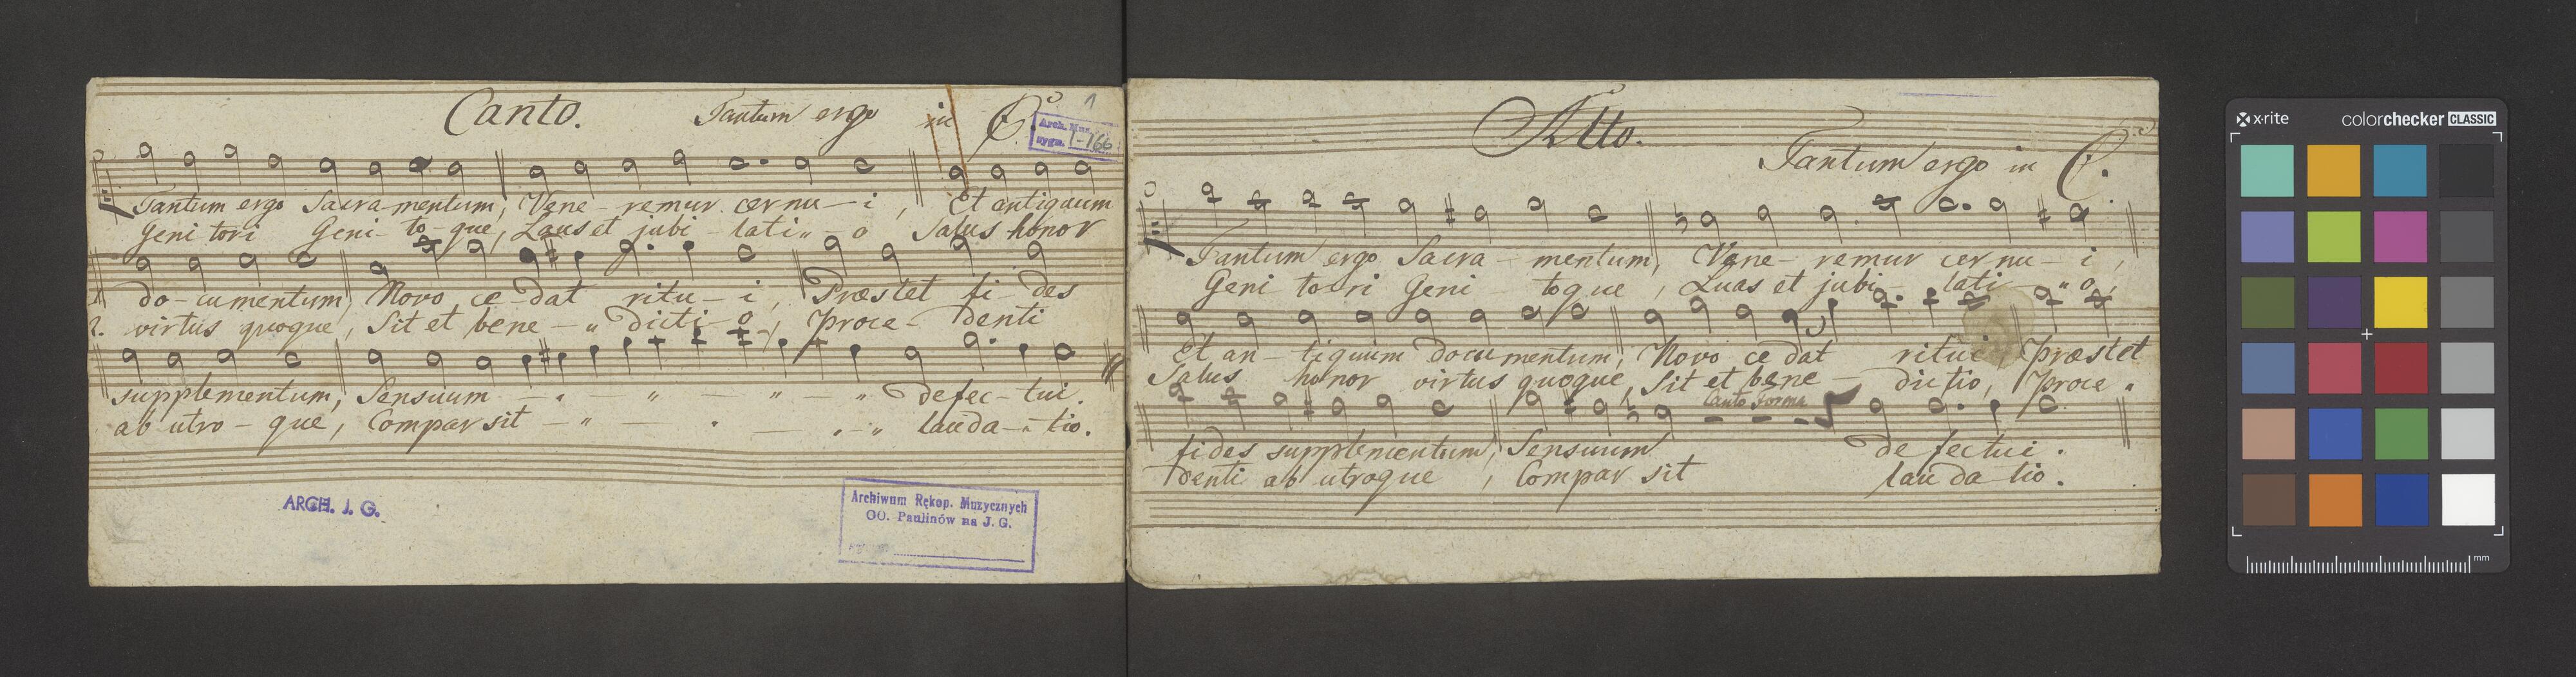 Canto. Tantum ergo in C.
1
Arch. Muz.
sygn. I-166
Tantum ergo Sacra-mentum, Vene-remur cernu-i, Et antiquum
Geni tori Geni-to-que, Laus et jubi-lati"-o Salus honor
1. do-cumentum, Novo ce-dat ritu-i, Præstet fi-des
2. virtus quoque, Sit et bene-" dicti-o, Proce-denti
supplementum, Sensuum - " - " - " - " defec-tui.
ab utro-que, Compar sit - " - . - " - " lauda-"tio.
ARCH. J. G.
Archiwum Rękop. Muzycznych
OO. Paulinów na J. G.
Alto.
Tantum ergo in C.
Tantum ergo Sacra-mentum, Vene-remur cernu-i,
Geni to-ri Geni-toque, Luas et jubi-lati-"o,
Et an-tiquum documentum, Novo ce dat ritui, Præstet
Salus honor virtus quoque, Sit et bene-dictio, Proce"
Canto Forma
fides supplementum, Sensuum defectui.
denti ab utroque, Compar sit lau da tio.
x-rite colorchecker CLASSIC
mm